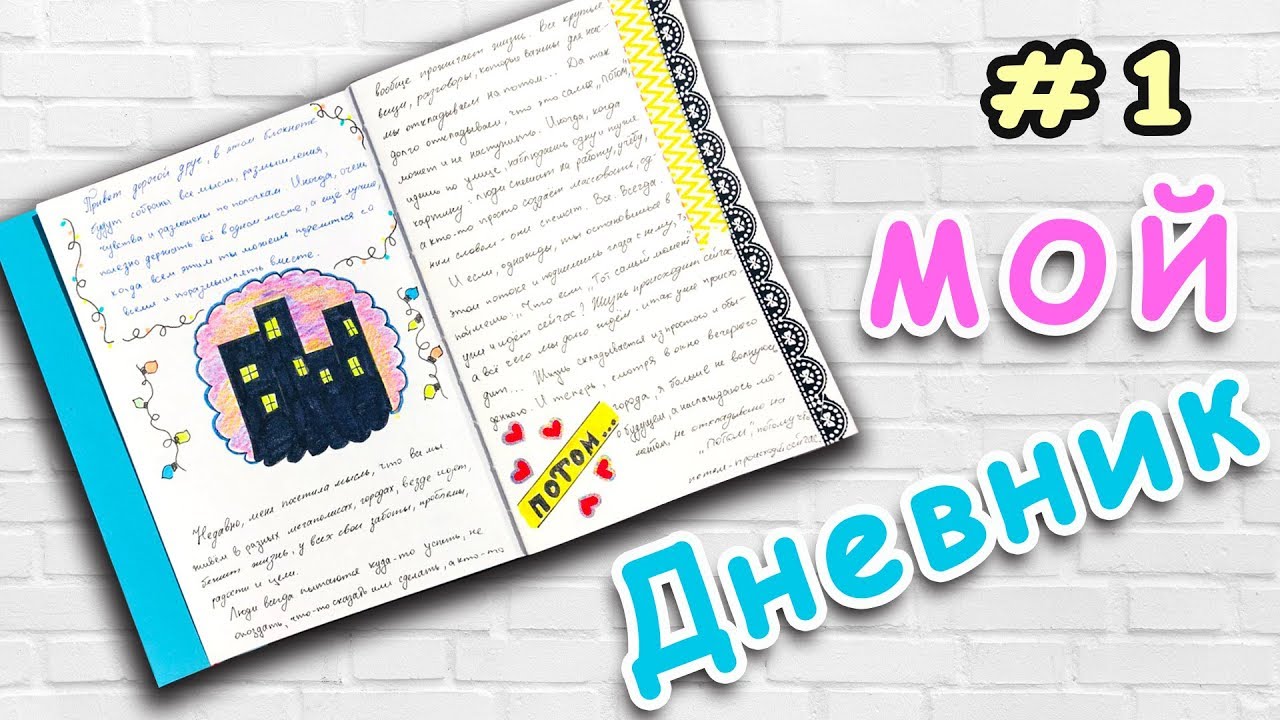 Привет дорогой друг, в этом блокноте
будут собраны все мысли, размышления,
чувства и разложены по полочкам. Иногда, очень
полезно держать всё в одном месте, а ещё лучше,
когда всем этим ты можешь поделиться со
всеми и поразмышлять вместе.
Недавно, меня посетила мысль, что все мы
живём в разных мегаполисах, городах, везде идёт,
бежит жизнь, у всех свои заботы, проблемы,
радости и цели.
Люди всегда пытаются куда-то успеть, не
опоздать, что-то сказать или сделать, а кто-то
вообще прожигает жизнь. Все крупные
вещи, разговоры, которые важны для нас
мы откладываем на потом... Да так
долго откладываем, что это самое "потом",
может и не наступить. Иногда, когда
идёшь по улице, наблюдаешь одну и ту же
картину: люди спешат на работу, учёбу,
а кто-то просто создаёт массовость, од-
ним словом - они спешат. Все. Всегда.
И если, однажды, ты остановишься в
этом потоке и поднимешь глаза к небу,
поймёшь: "Что если "Тот самый момент"
уже и идёт сейчас? Жизнь происходит сейчас,
а всё чего мы долго ждём - итак уже проис-
дит... Жизнь складывается из простого и обы-
денного. И теперь, смотря в окно вечернего
города, я больше не волнуюсь
о будущем, а наслаждаюсь мо-
ментом, не откладываю на
"потом", потому что
потом - происходит сейчас
потом...
#1
мой
Дневник